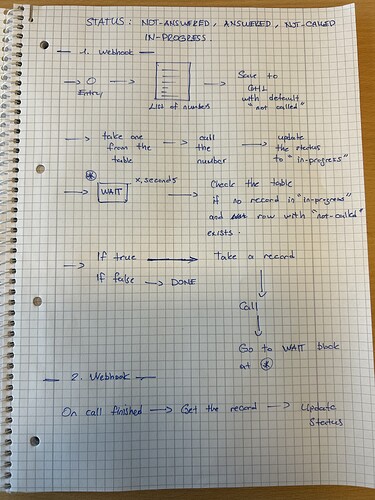 STATUS: NOT-ANSWERED, ANSWERED, NOT-CALLED
IN-PROGRESS.
1. Webhook
Entry
List of numbers
Save to
GHL
with default
"not called"
take one
from the
table
call
the
number
update
the status
to "in-progress"
WAIT
x, seconds
Check the table
if no record in "in-progress"
and row with "not-called"
exists.
If true
Take a record
If false
DONE
Call
Go to WAIT block
at
2. Webhook
On call finished
Get the record
Update
Status